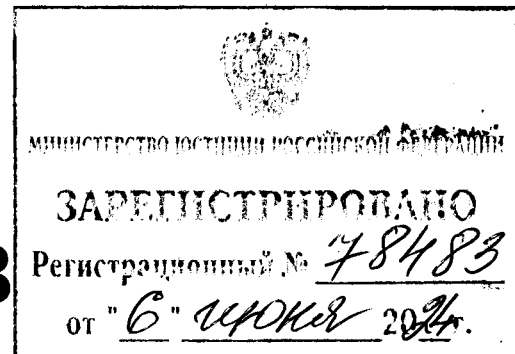 МИНИСТЕРСТВО ЮСТИЦИИ РОССИЙСКОЙ ФЕДЕРАЦИИ
ЗАРЕГИСТРИРОВАНО
Регистрационный № 78483
от "6" июня 2024г.